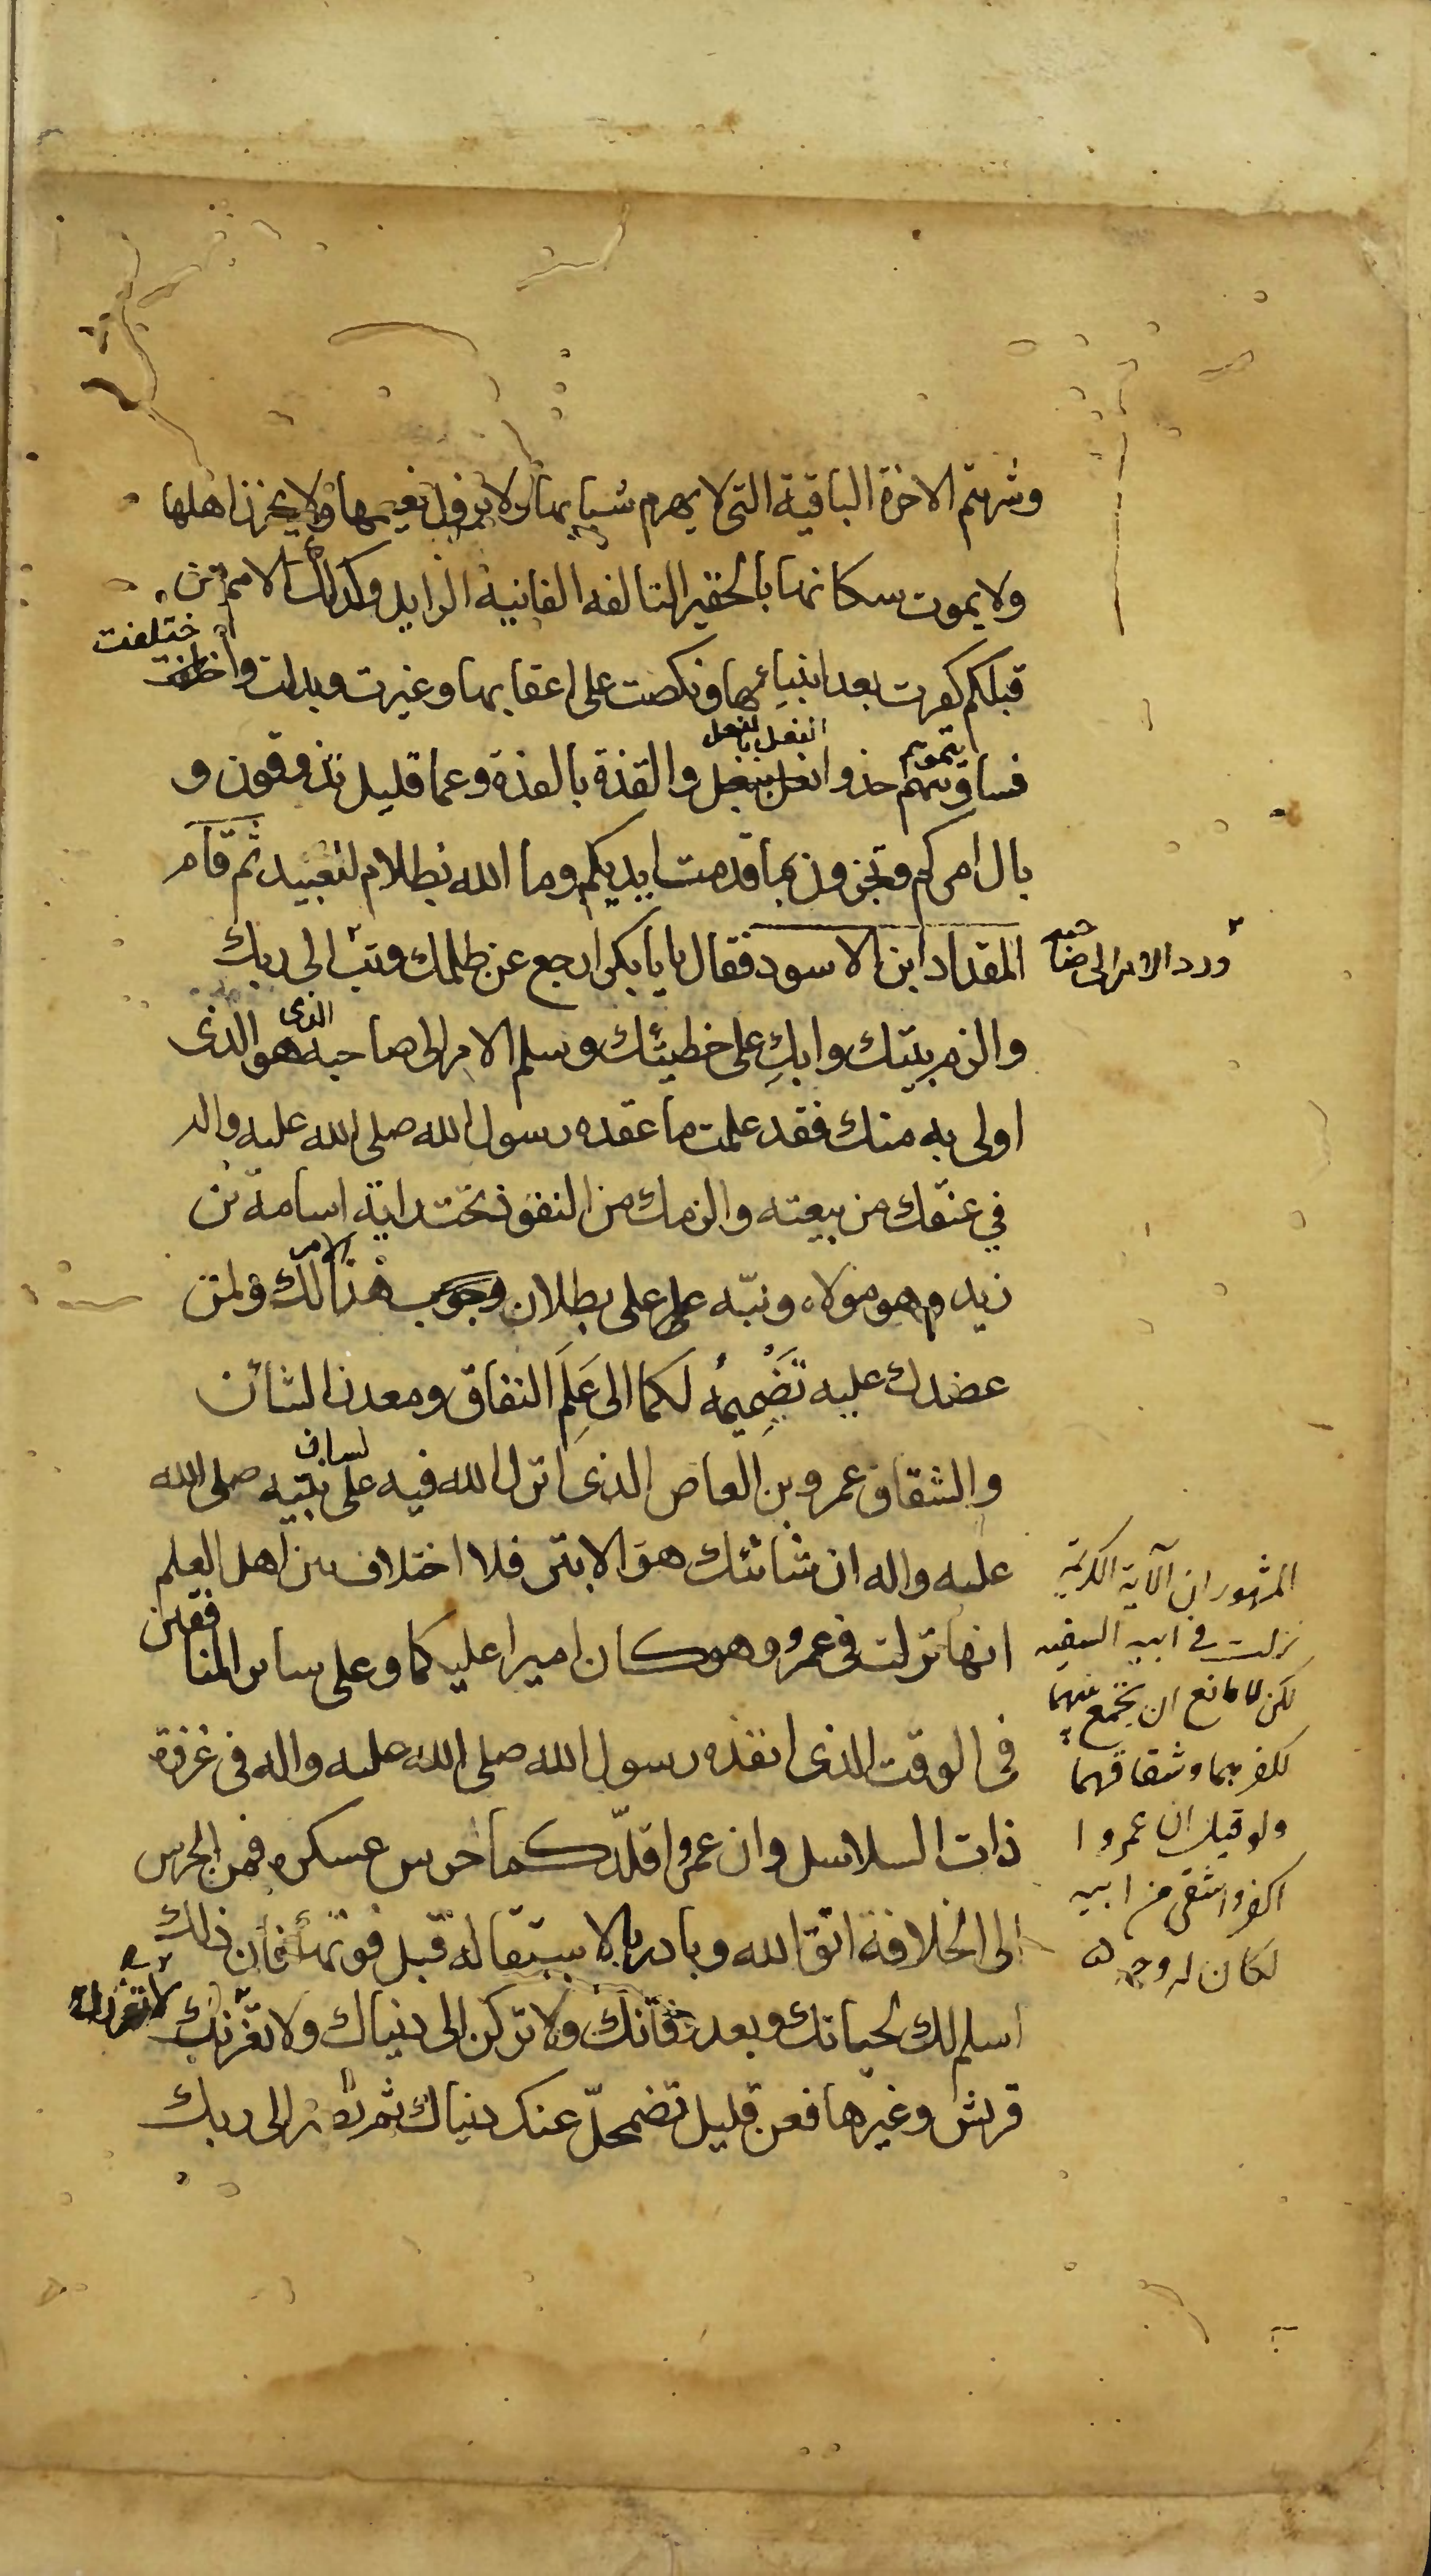 وشريتم الاخرة الباقية التى لا يهرم شبابها ولا يزول نعيمها ولا يحزن اهلها
ولا يموت سكانها بالحقير التالفه الفانية الزايل وكذلك الامم من
قبلكم كفرت بعد انبيائها ونكصت على اعقابها وغيرت وبدلت واختلفت
فساويتموهم حذو النعل بالنعل والقذة بالقذة وعما قليل تذوقون و
بال امركم وتجزون بما قدمت ايديكم وما الله بظلام للعبيد ثم قام
المقداد ابن الاسود فقال يا بابكر ارجع عن ظلمك وتب الى ربك
ورد الامر الى صاحبه
والزم بيتك وابكِ على خطيئتك وسلم الامر الى صاحبه الذى هو الذى
اولى به منك فقد علمت ما عقده رسول الله صلى الله عليه واله
في عنقك من بيعته والزمك من النفوذ تحت راية اسامة بن
زيد وهو مولاه ونبّه على بطلان وجوب هذا الامر لك ولمن
عضدك عليه بضمّه لكما الى عَلَم النفاق ومعدن الشنأن
والشقاق عمرو بن العاص الذى انزل الله فيه على لسان نبيه صلى الله
عليه واله ان شانئك هو الابتر فلا اختلاف بين اهل العلم
انها نزلت فى عمرو وهو كان اميرا عليكما وعلى ساير المنافقين
فى الوقت الذى انفذه رسول الله صلى الله عليه واله فى غزوة
ذات السلاسل وان عمروا قلّدكما حرس عسكره فمن الحرس
الى الخلافة اتق الله وبادر بالاستقالة قبل فوتها فان ذلك
اسلم لك لحياتك وبعد وفاتك ولا تركن الى دنياك ولا تغرنك
قريش وغيرها فعن قليل تضمحلّ عنك دنياك ثم تصير الى ربك
المشهور ان الآية الكريمة
نزلت في ابيه السفيه
لكن لا مانع ان يجتمع فيهما
لكفرهما وشقاقهما
ولو قيل ان عمروا
اكفر واشقى من ابيه
لكان له وجه